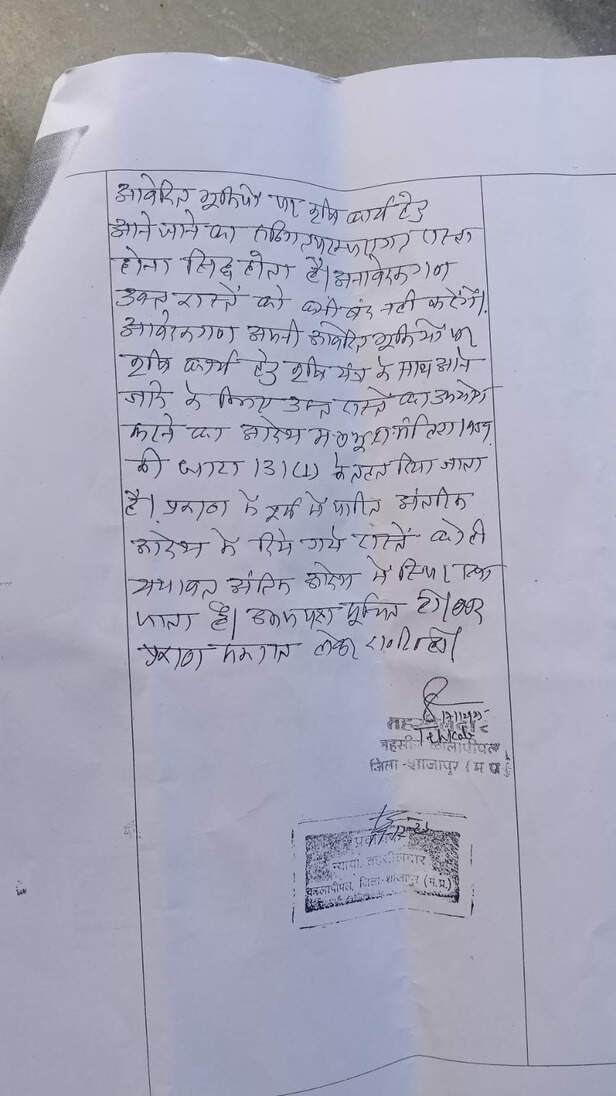 आवेदित भूमियों पर कृषि कार्य हेतु
आने जाने का रूढिगत परम्परागत रास्ता
होना सिद्ध होता है। अनावेदकगण
उक्त रास्ते को कभी बंद नही करेंगें।
आवेदकगण अपनी आवेदित भूमियों पर
कृषि कार्य हेतु कृषि यंत्र के साथ आने
जाने के लिए उक्त रास्ते का उपयोग
करने का आदेश म०प्र० भू० रा० संहिता 1959
की धारा 131(1) के तहत दिया जाता
है। प्रकरण में पूर्व में पारित अंतरिम
आदेश में दिये गये रास्ते को ही
यथावत अंतिम आदेश में स्थिर किया
जाता है। उभयपक्ष सूचित हो। बाद
प्रकरण समाप्त होकर दा० द० हो।
Tehsildar
तहसील कालापीपल
जिला-शाजापुर (म प्र)
न्याया. तहसीलदार
कालापीपल, जिला-शाजापुर (म.प्र.)